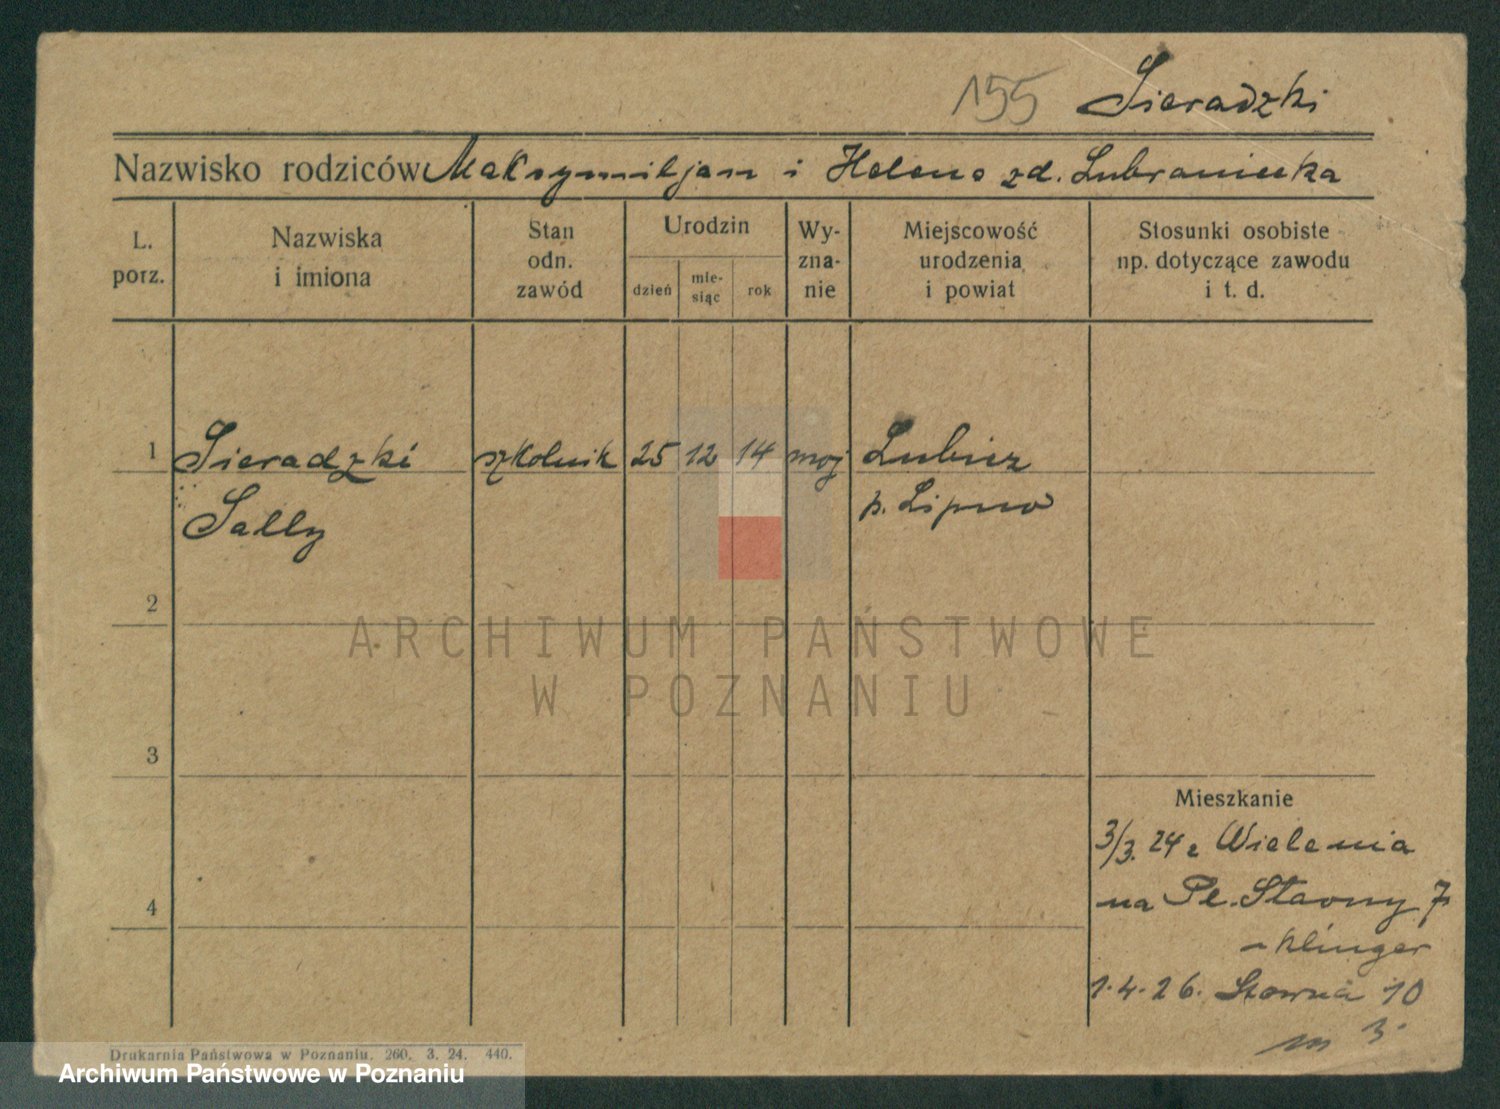 155 Sieradzki
Nazwisko rodziców Maksymiljan i Helena zd. Lubraniecka
L. porz.
Nazwiska i imiona
Stan odn. zawód
Urodzin
dzień
mie- siąc
rok
Wy- zna- nie
Miejscowość urodzenia i powiat
Stosunki osobiste np. dotyczące zawodu i t. d.
1 Sieradzki szkolnik 25 12 14 moj Lubicz
Sally p. Lipno
2
ARCHIWUM PAŃSTWOWE
W POZNANIU
3
Mieszkanie
3/3. 24 z Wielenia
4
na Pl. Stawny 7
Klinger
1.4.26. Stawna 10
m 3
Drukarnia Państwowa w Poznaniu. 260. 3. 24. 440.
Archiwum Państwowe w Poznaniu